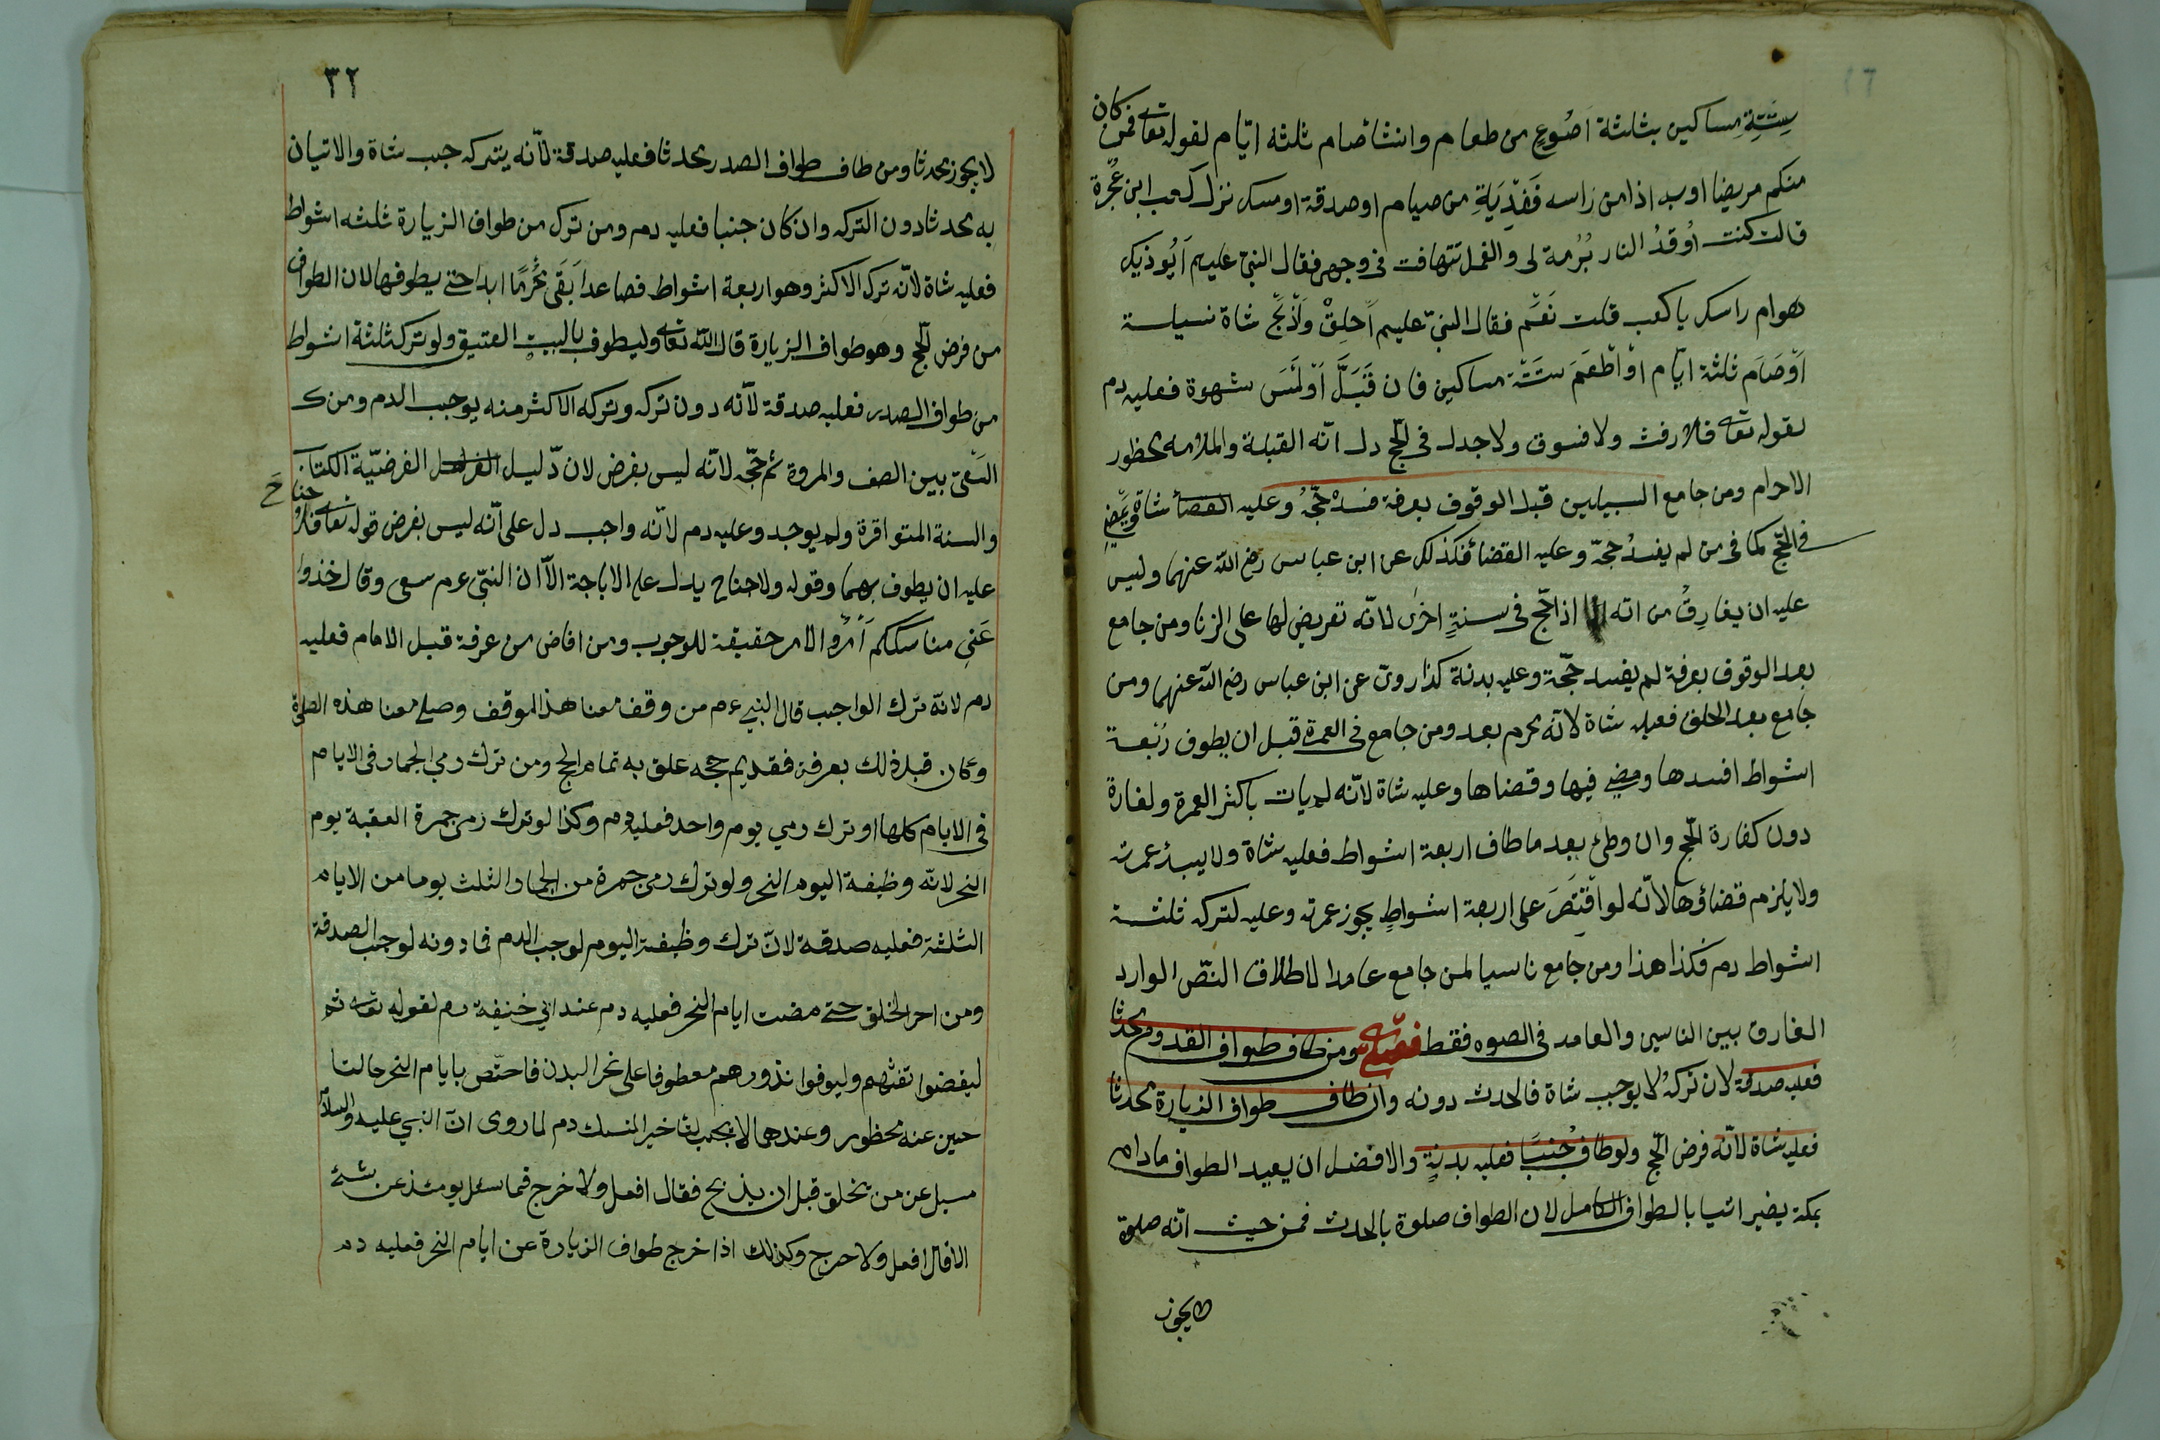 ستة مساكين بثلثة اَصْوُعٍ من طعام وانشا صام ثلثه ايّام لقوله تعا فمن كان
منكم مريضا او به اذا من راسه فَفِدْيَةٍ من صيام او صدقة او نسك نزل كعب ابن عُجْرة
قال كنت اُوقدُ النار بُرْمة لى والقمل تتهافت فى وجهى فقال النبىّ عليم اَيُوذيك
هوام راسك يا كعب قلت نَعَم فقال النبىّ عليم اَحلِقْ وَاَذْبَحْ شاة نسياسة
اَوْصَام ثلثة ايّام اَوْ اَطْعَمَ ستَّة مساكين فان قَبَلَّ اَوْ لَمَسَ شهوة فعليه دم
لقوله تعا فلا رفث ولا فسوق ولا جدل فى الحّج دل انّه القبلة والملامسه محظور
الاحرام ومن جامع السبيلين قبل الوقوف بعرفة فسدْ حَجّهُ وعليه القضا شاة ويَمْضى
فى الحّج كما فى من لم يفسدْ حجّه وعليه القضا فكذلك عن ابن عباس رضى اللّه عنهما وليس
عليه ان يفارِقْ من اته اذا حّج فى سنةٍ اخرٰى لانّه تعريض لها على الزنا ومن جامع
بعد الوقوف بعرفة لم يفسد حجّة وعليه بدنة كذا روىّ عن ابن عباس رضى اللّه عنهما ومن
جامع بعد الحلق فعليه شاة لانّه يحرم بعد ومن جامع فى العمرة قبل ان يطوف رُبعة
اشواط افسدها ومضى فيها وقضاها وعليه شاة لانّه لم يات باكثر العمرة ولفارة
دون كفارة الحّج وان وطئ بعد ما طاف اربعة اشواط فعليه شاة ولا يبسدْ عمرته
ولا يلزم قضاؤها لانّه لو اَقْتَصَرَ على اربعة اشواطٍ يجوز عمرته وعليه لتركه ثلثة
اشواط دم فكذا هذا ومن جامع ناسيا لمن جامع عامدا لاطلاق النّص الوارد
الفارق بين الناسى والعامد فى الصوم فقط فصل ومن طاف طواف القدوم محدثا
فعليه صدقة لان تركهُ لا يوجب شاة فالحدث دونه وان طاف طواف الزيارة محدثا
فعليه شاة لانّه فرض الحّج ولو طاف جُنبًا فعليه بدنةٍ والافضل ان يعيد الطواف مادام
بمكة يضير اتيا بالطواف الكامل لان الطواف صلوة بالحدث فمن حيث انّه صلوة
لا يجوز
٣٢
لا يجوز محدثا ومن طاف طواف الصدر محدثا فعليه صدقة لانّه يتركه جب شاة والاتيان
به محدثا دون التركه وان كان جنبا فعليه دم ومن ترك من طواف الزيارة ثلثه اشواط
فعليه شاة لانّه ترك الاكثر وهو اربعة اشواط فصاعدا بَقَى مُحْرِمًا ابدا حتى يطوفها لان الطواف
من فرض الحّج وهو طواف الزيارة قال اللّه تعا وليطوف بالبيت العتيق ولو تركه ثلثة اشواط
من طواف الصدر فعليه صدقة لانّه دون تركه وتركه الاكثر منه يوجب الدم ومن ك
السّعىَ بين الصف والمروة ثم حَجّه لانّه ليس بفرض لان دّليل الفرضيّة الكتاب
والسنة المتواقرة ولم يوجد وعليه دم لانّه واجب دل على انّه ليس بفرض قوله تعا فلا جناح
عليه ان يطوف بهما وقوله ولا جناح يدل على الاباحة الاّ ان النبىّ عم سعى وقال خذوا
عَنى مناسككم اَمْرُ الامر حقيقة للوجوب ومن افاض من عرفة قبل الامام فعليه
دم لانّه ترك الواجب قال النبى عم من وقف معنا هذ الموقف وصلى معنا هذه الصلوة
وكان قبله ذلك بعرفة فقديم حجه علق به تمام الحج ومن ترك رمي الجمار فى الايام
فى الايام كلها او ترك رمي يوم واحد فعليه دم وكذا لو ترك رمى جمرة العقبة يوم
النحر لانّه وظيفة اليوم النحر ولو ترك رمى جمرة من الجمار الثلث يوما من الايام
الثلثة فعليه صدقة لانّ ترك وظيفة اليوم لوجب الدم فما دونه لوجب الصدقة
ومن اخر الخلق حتى مضت ايام النحر فعليه دم عند ابى خنيفة رم لقوله تعه ثم
ليقضوا تفثهم وليوفوا نذورهم معطوفا على نحر البدن فاختّص بايام النحر حالتا
حين عنه محظور وعندهما لا يجب لتاخير المنسك دم لما روى انّ النبي عليه والسلام
سيل عن من يخلق قبل ان يذبح فقال افعل ولا خرج فما سئل يومئذ عن شئ
الا قال افعل ولا حرج وكذلك اذا خرج طواف الزيارة عن ايام النحر فعليه دم